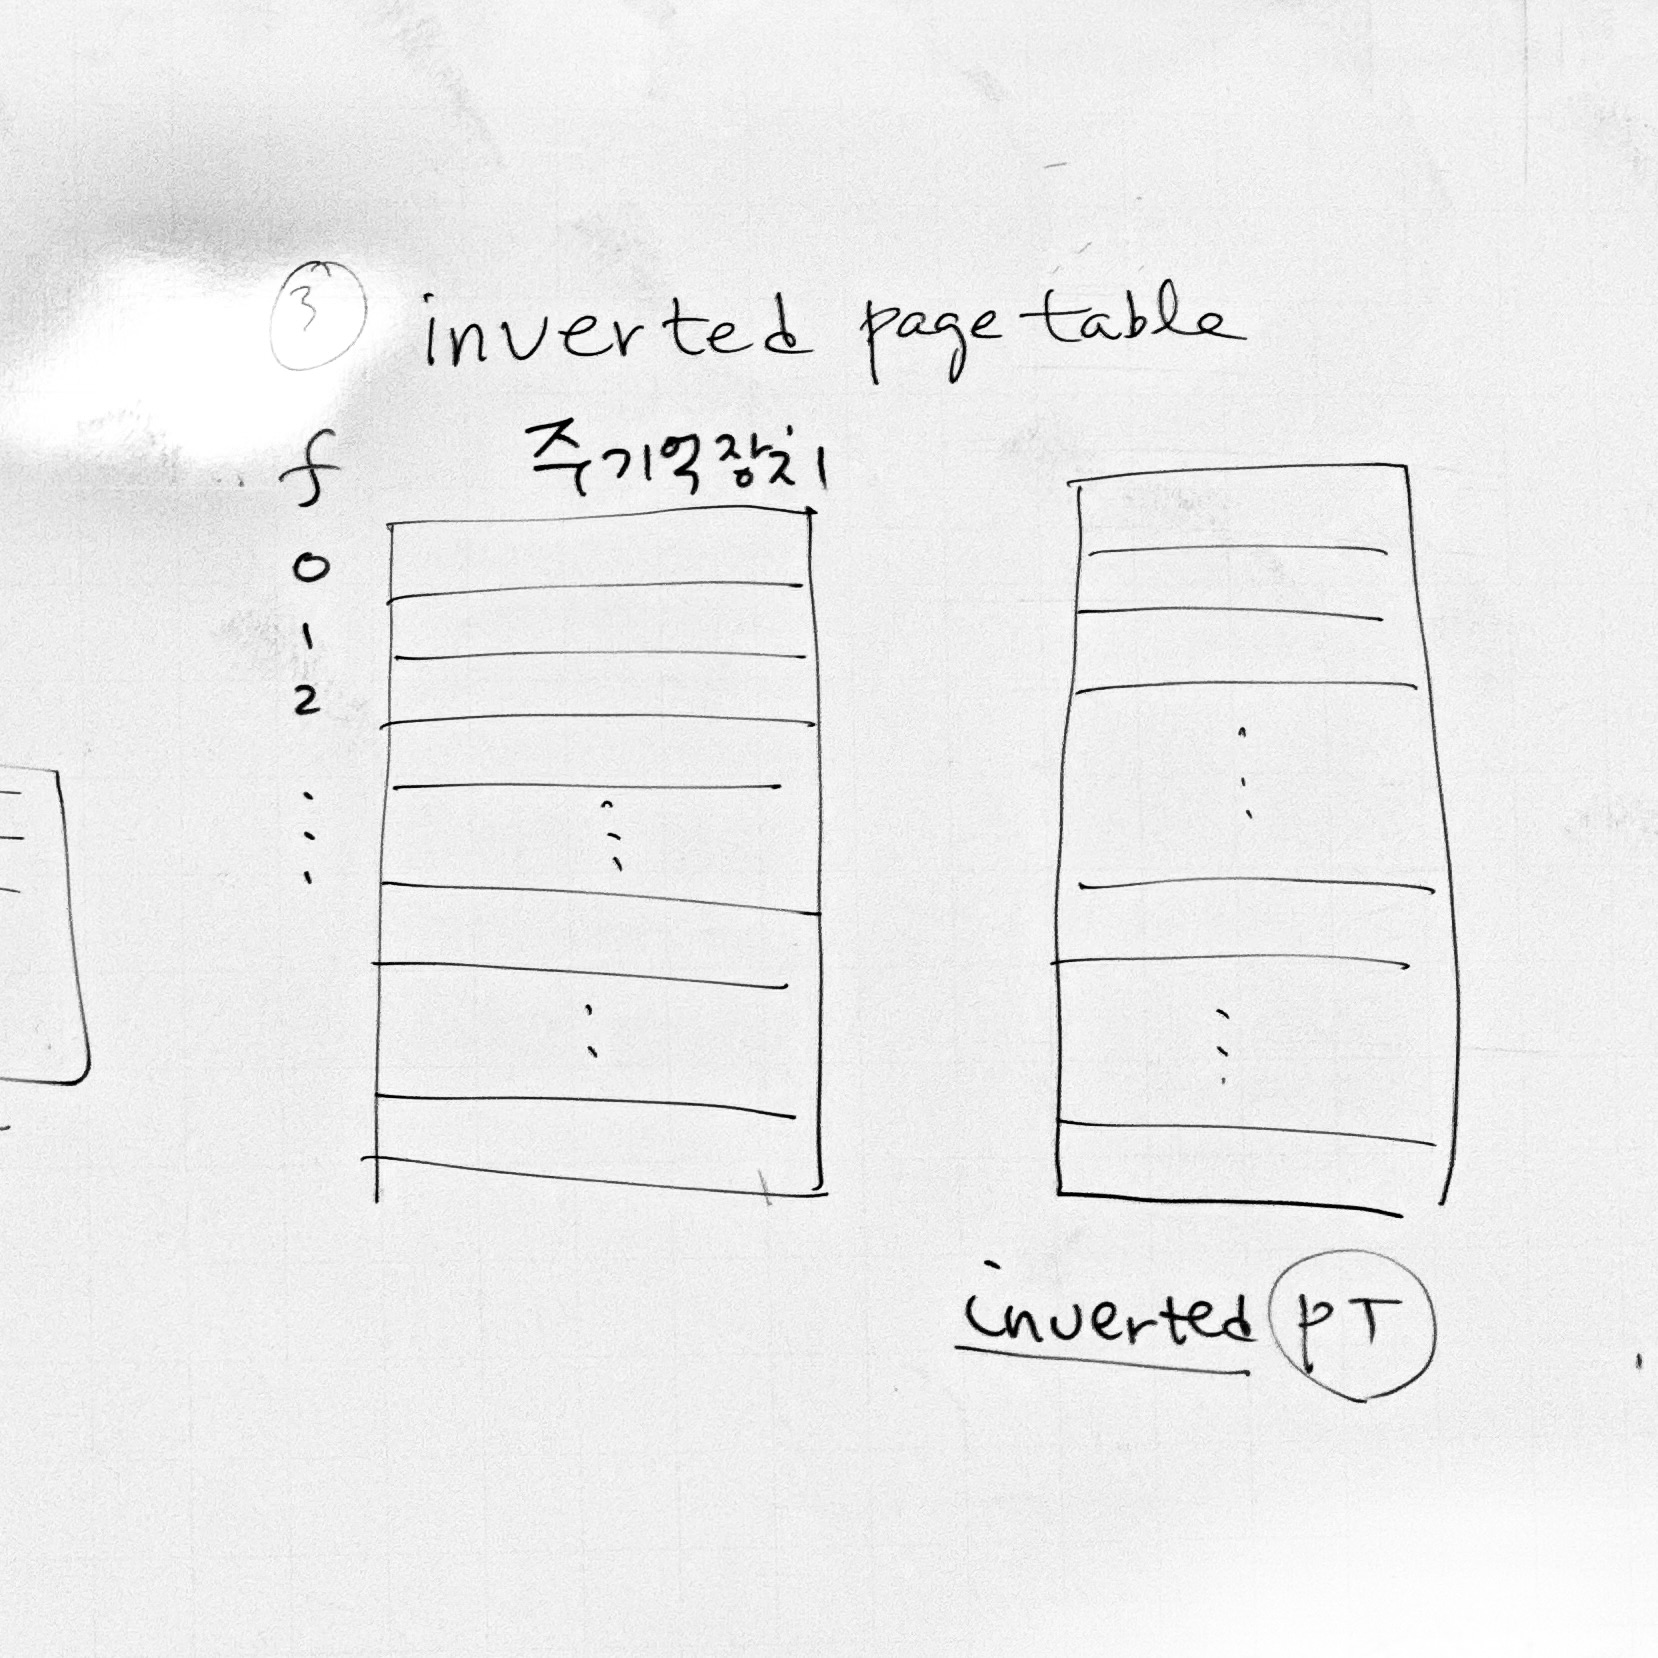 ③ inverted page table
f 주기억장치
0
1
2
inverted PT